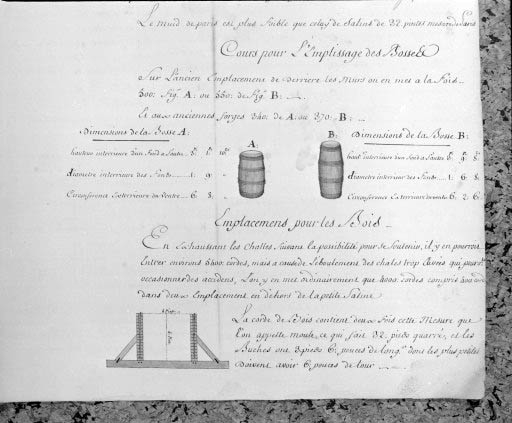 Le muid de paris est plus foible que celuy de Salins de 32. pintes mesure de paris
Cours pour L'Emplissage des Bosses
Sur L'ancien Emplacement de derriere les Murs on en met a la fois
500: fig. A: ou 550: de fig. B:
Et aux anciennes forges 340: de A: ou 370: B:
Dimensions de la Bosse A:
hauteur interieure d'un fond a l'autre 5. 1. 10.
diametre interieure des fonts 1. 9.
Circonference Exterieure du ventre 6. 8.
A:
B:
Dimensions de la Bosse B:
haut. interieure d'un fond a l'autre 5. 9. 8.
diametre interieur des fonts 1. 6. 8.
Circonference Exterieure du ventre 6. 2. 6.
Emplacemens pour les Bois
En Exhaussant les Challes, suivant la possibilité pour se soutenir, il y en pourroit
Entrer environs 5500: cordes, mais a cause de l'éboulement des chales trop Elevées qui
occasionner des accidens, L'on y en met ordinairement que 4000: cordes compris 300
dans deux Emplacement en dehors de la petite Saline
La corde de Bois contient deux fois cette Mesure que
l'on appelle moule, ce qui fait 32. pieds quarré, et les
Buches ont 3 pieds 6: pouces de long. dont les plus petites
doivent avoir 6. pouces de tour